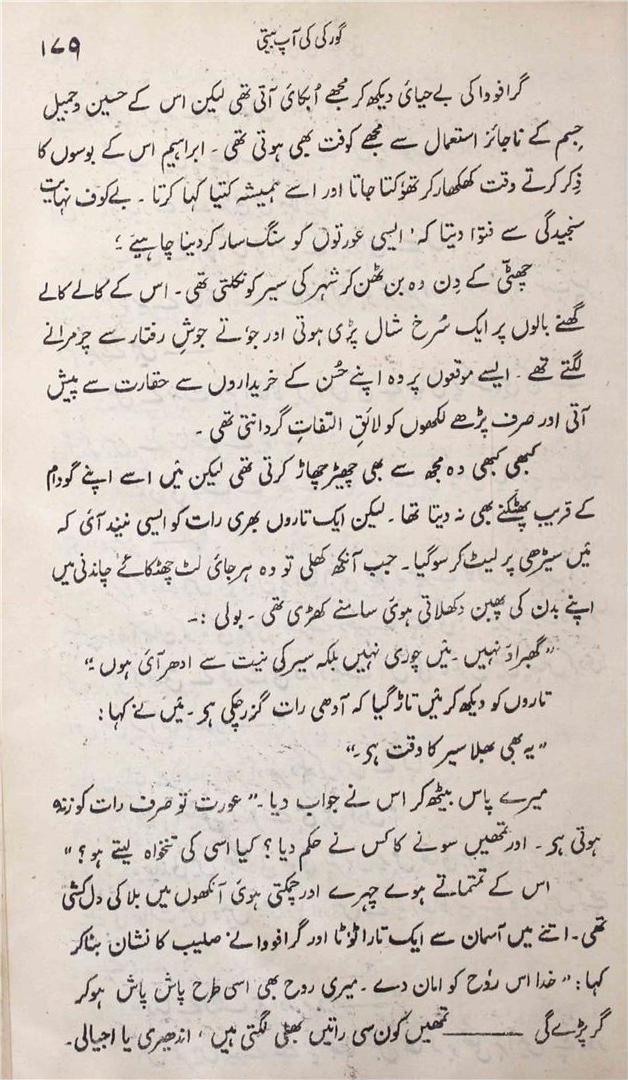 گورکی کی آپ بیتی
۱۷۹
گرافوواکی بے حیائی دیکھ کر مجھے اُبکائی آتی تھی لیکن اس کے حسین وجمیل
جسم کے ناجائز استعمال سے مجھے کوفت بھی ہوتی تھی ۔ ابراہیم اس کے بوسوں کا
ذِکر کرتے وقت کھنکھار کر تھوُکتا جاتا اور اسے ہمیشہ کُتیا کہا کرتا ۔ بےکوف نہایت
سنجیدگی سے فتوٰا دیتا کہ ' ایسی عورتوں کو سنگ سار کردینا چاہیئے ؛
چھٹیّ کے دِن وہ بن ٹھن کر شہر کی سیر کو نکلتی تھی ۔ اس کے کالے کالے
گھنے بالوں پر ایک سُرخ شال پڑی ہوتی اور جوُتے جوشِ رفتار سے چرمرانے
لگتے تھے ۔ ایسے موقعوں پر وہ اپنے حُسن کے خریداروں سے حقارت سے پیش
آتی اور صرف پڑھے لکھوں کو لائقِ التفات گردانتی تھی ۔
کبھی کبھی وہ مجھ سے بھی چھیڑ چھاڑ کرتی تھی لیکن میَں اسے اپنے گودام
کے قریب پھٹکنے بھی نہ دیتا تھا ۔ لیکن ایک تاروں بھری رات کو ایسی نیند آئی کہ
میَں سیڑھی پر لیٹ کر سوگیا ۔ جب آنکھ کھلی تو وہ ہرجائی لٹ چھٹکائے چاندنی میں
اپنے بدن کی پھبن دکھلاتی ہوئی سامنے کھڑی تھی ۔ بولی :۔
" گھبراؤ نہیں ۔ میَں چوری نہیں بلکہ سیر کی نیت سے ادھر آئی ہوں ؛"
تاروں کو دیکھ کر میَں تاڑ گیا کہ آدھی رات گزرچکی ہی ۔ میَں نے کہا :
" یہ بھی بھلا سیر کا وقت ہی ۔"
میرے پاس بیٹھ کر اس نے جواب دیا ۔" عورت تو صرف رات کو زندہ
ہوتی ہی ۔ اور تمھیں سونے کا کس نے حکم دیا ؟ کیا اسی کی تنخواہ لیتے ہو ؟ "
اس کے تمتماتے ہوے چہرے اور چمکتی ہوئی آنکھوں میں بلا کی دل کشی
تھی ۔ اتنے میں آسمان سے ایک تارا ٹوُٹا اور گرافووا نے صلیب کا نشان بناکر
کہا : " خدا اس روُح کو امان دے ۔ میری روح بھی اسی طرح پاش پاش ہوکر
گر پڑے گی ——— تمھیں کون سی راتیں بھلی لگتی ہیں ، اندھیری یا اجیالی ۔